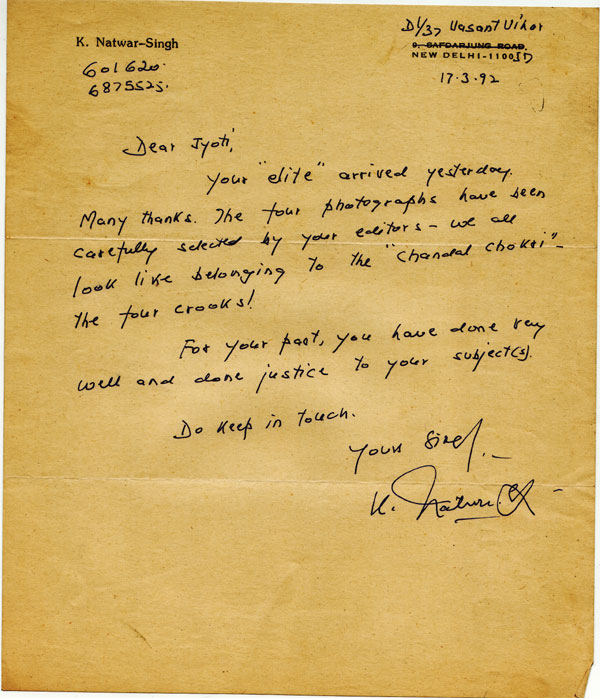 K. Natwar-Singh
601620.
6875525.
D1/37 Vasant Vihar
9, SAFDARJUNG ROAD,
NEW DELHI-110057
17.3.92
Dear Jyoti,
Your "elite" arrived yesterday.
Many thanks. The four photographs have been
carefully selected by your editors - we all
look like belonging to the "Chandal Chokri" -
the four crooks!
For your part, you have done very
well and done justice to your subject(s).
Do keep in touch.
Yours
K. Natwar